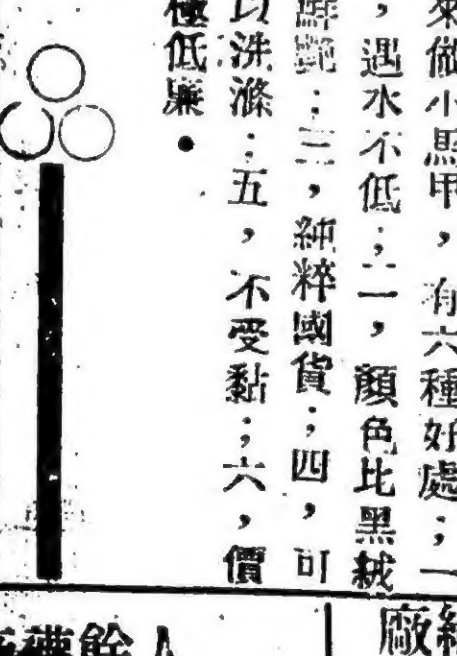 來做小馬甲，有六種好處；一
，遇水不低；二，顏色比黑絨
鮮艷；三，純粹國貨；四，可
以洗滌；五，不受黏；六，價
極低廉．
廠
餘